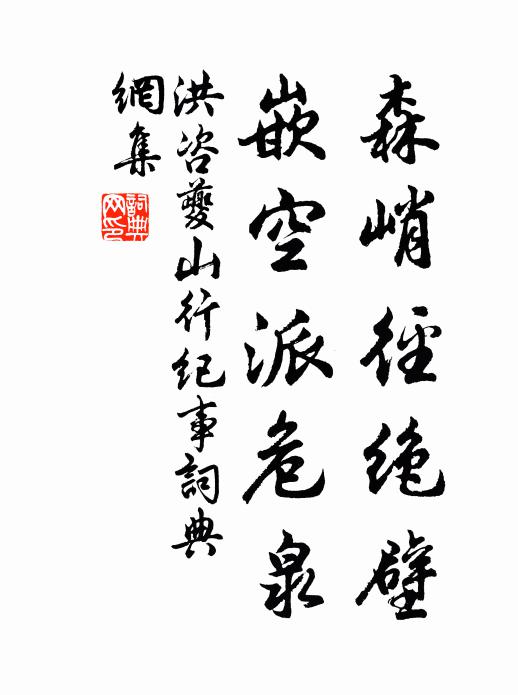 森峭徑絶壁
嵌空派危泉
洪咨夔山行紀事詞典
網集
詞典網印